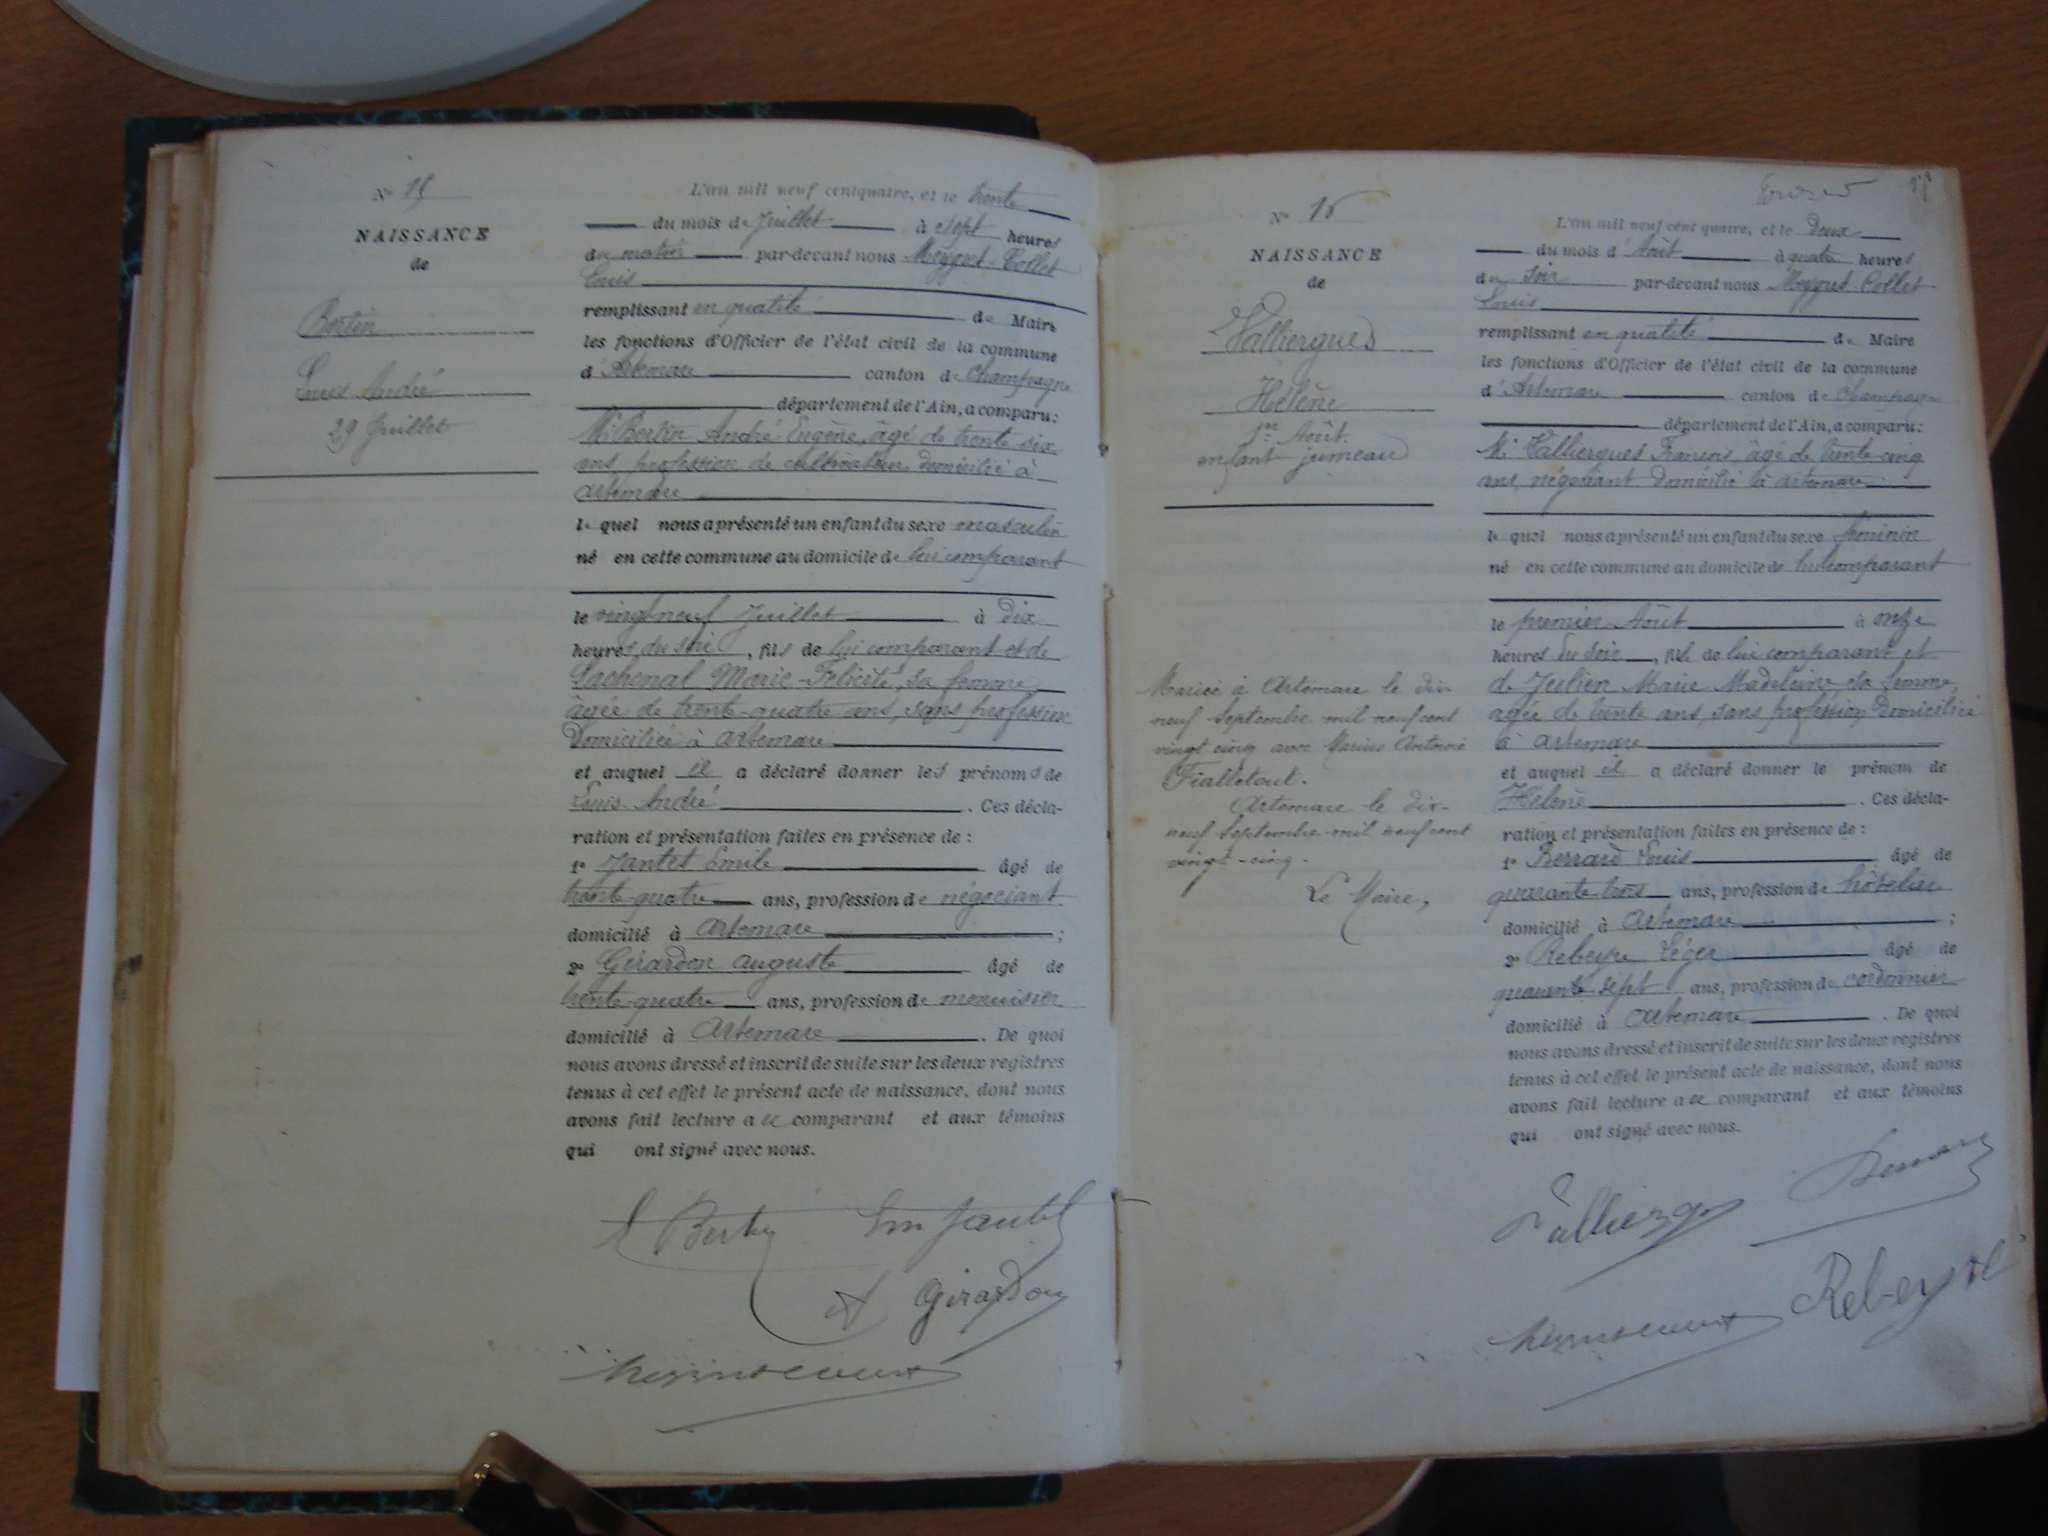 N° 15
NAISSANCE
de
Bertin
Louis André
29 Juillet
L'an mil neuf cent quatre, et le trente
du mois de Juillet à sept heures
du matin par-devant nous Meyget-Collet
Louis
remplissant en qualité de Maire
les fonctions d'Officier de l'état civil de la commune
d'Artemare canton de Champagne
département de l'Ain, a comparu:
Mr Bertin André Eugène, âgé de trente-six
ans, profession de cultivateur domicilié à
Artemare
le quel nous a présenté un enfant du sexe masculin
né en cette commune au domicile de lui comparant
le vingt-neuf Juillet à dix
heures du soir, fils de lui comparant et de
Gachenal Marie-Félicité, sa femme,
âgée de trente-quatre ans, sans profession
Domiciliée à Artemare
et auquel il a déclaré donner les prénoms de
Louis-André. Ces décla-
ration et présentation faites en présence de :
1° Jantet Emile âgé de
trente-quatre ans, profession de négociant
domicilié à Artemare ;
2° Girardon Auguste âgé de
trente-quatre ans, profession de menuisier
domicilié à Artemare. De quoi
nous avons dressé et inscrit de suite sur les deux registres
tenus à cet effet le présent acte de naissance, dont nous
avons fait lecture a ce comparant et aux témoins
qui ont signé avec nous.
Bertin Em Jantet
A Girardon
N° 16
NAISSANCE
de
Valliergues
Hélène
1er Août
enfant jumeau
Mariée à Artemare le dix-
neuf Septembre mil neuf cent
vingt cinq avec Marius Antoine
Fialletout.
Artemare le dix-
neuf Septembre mil neuf cent
vingt-cinq.
Le Maire,
L'an mil neuf cent quatre, et le Deux
du mois d'Août à quatre heures
du soir par-devant nous Meyget-Collet
Louis
remplissant en qualité de Maire
les fonctions d'Officier de l'état civil de la commune
d'Artemare canton de Champagne
département de l'Ain, a comparu:
Mr Valliergues François, âgé de trente-cinq
ans, négociant domicilié à Artemare
le quel nous a présenté un enfant du sexe féminin
né en cette commune au domicile de lui comparant
le premier Août à onze
heures du soir, fils de lui comparant et
de Julien Marie Madeleine sa femme,
agée de trente ans, sans profession domiciliée
à Artemare
et auquel il a déclaré donner le prénom de
Hélène. Ces décla-
ration et présentation faites en présence de :
1° Berrard Louis âgé de
quarante trois ans, profession de hôtelier
domicilié à Artemare ;
2° Rebeyre Léger âgé de
quarante sept ans, profession de cordonnier
domicilié à Artemare. De quoi
nous avons dressé et inscrit de suite sur les deux registres
tenus à cet effet le présent acte de naissance, dont nous
avons fait lecture a ce comparant et aux témoins
qui ont signé avec nous.
Valliergues Berrard